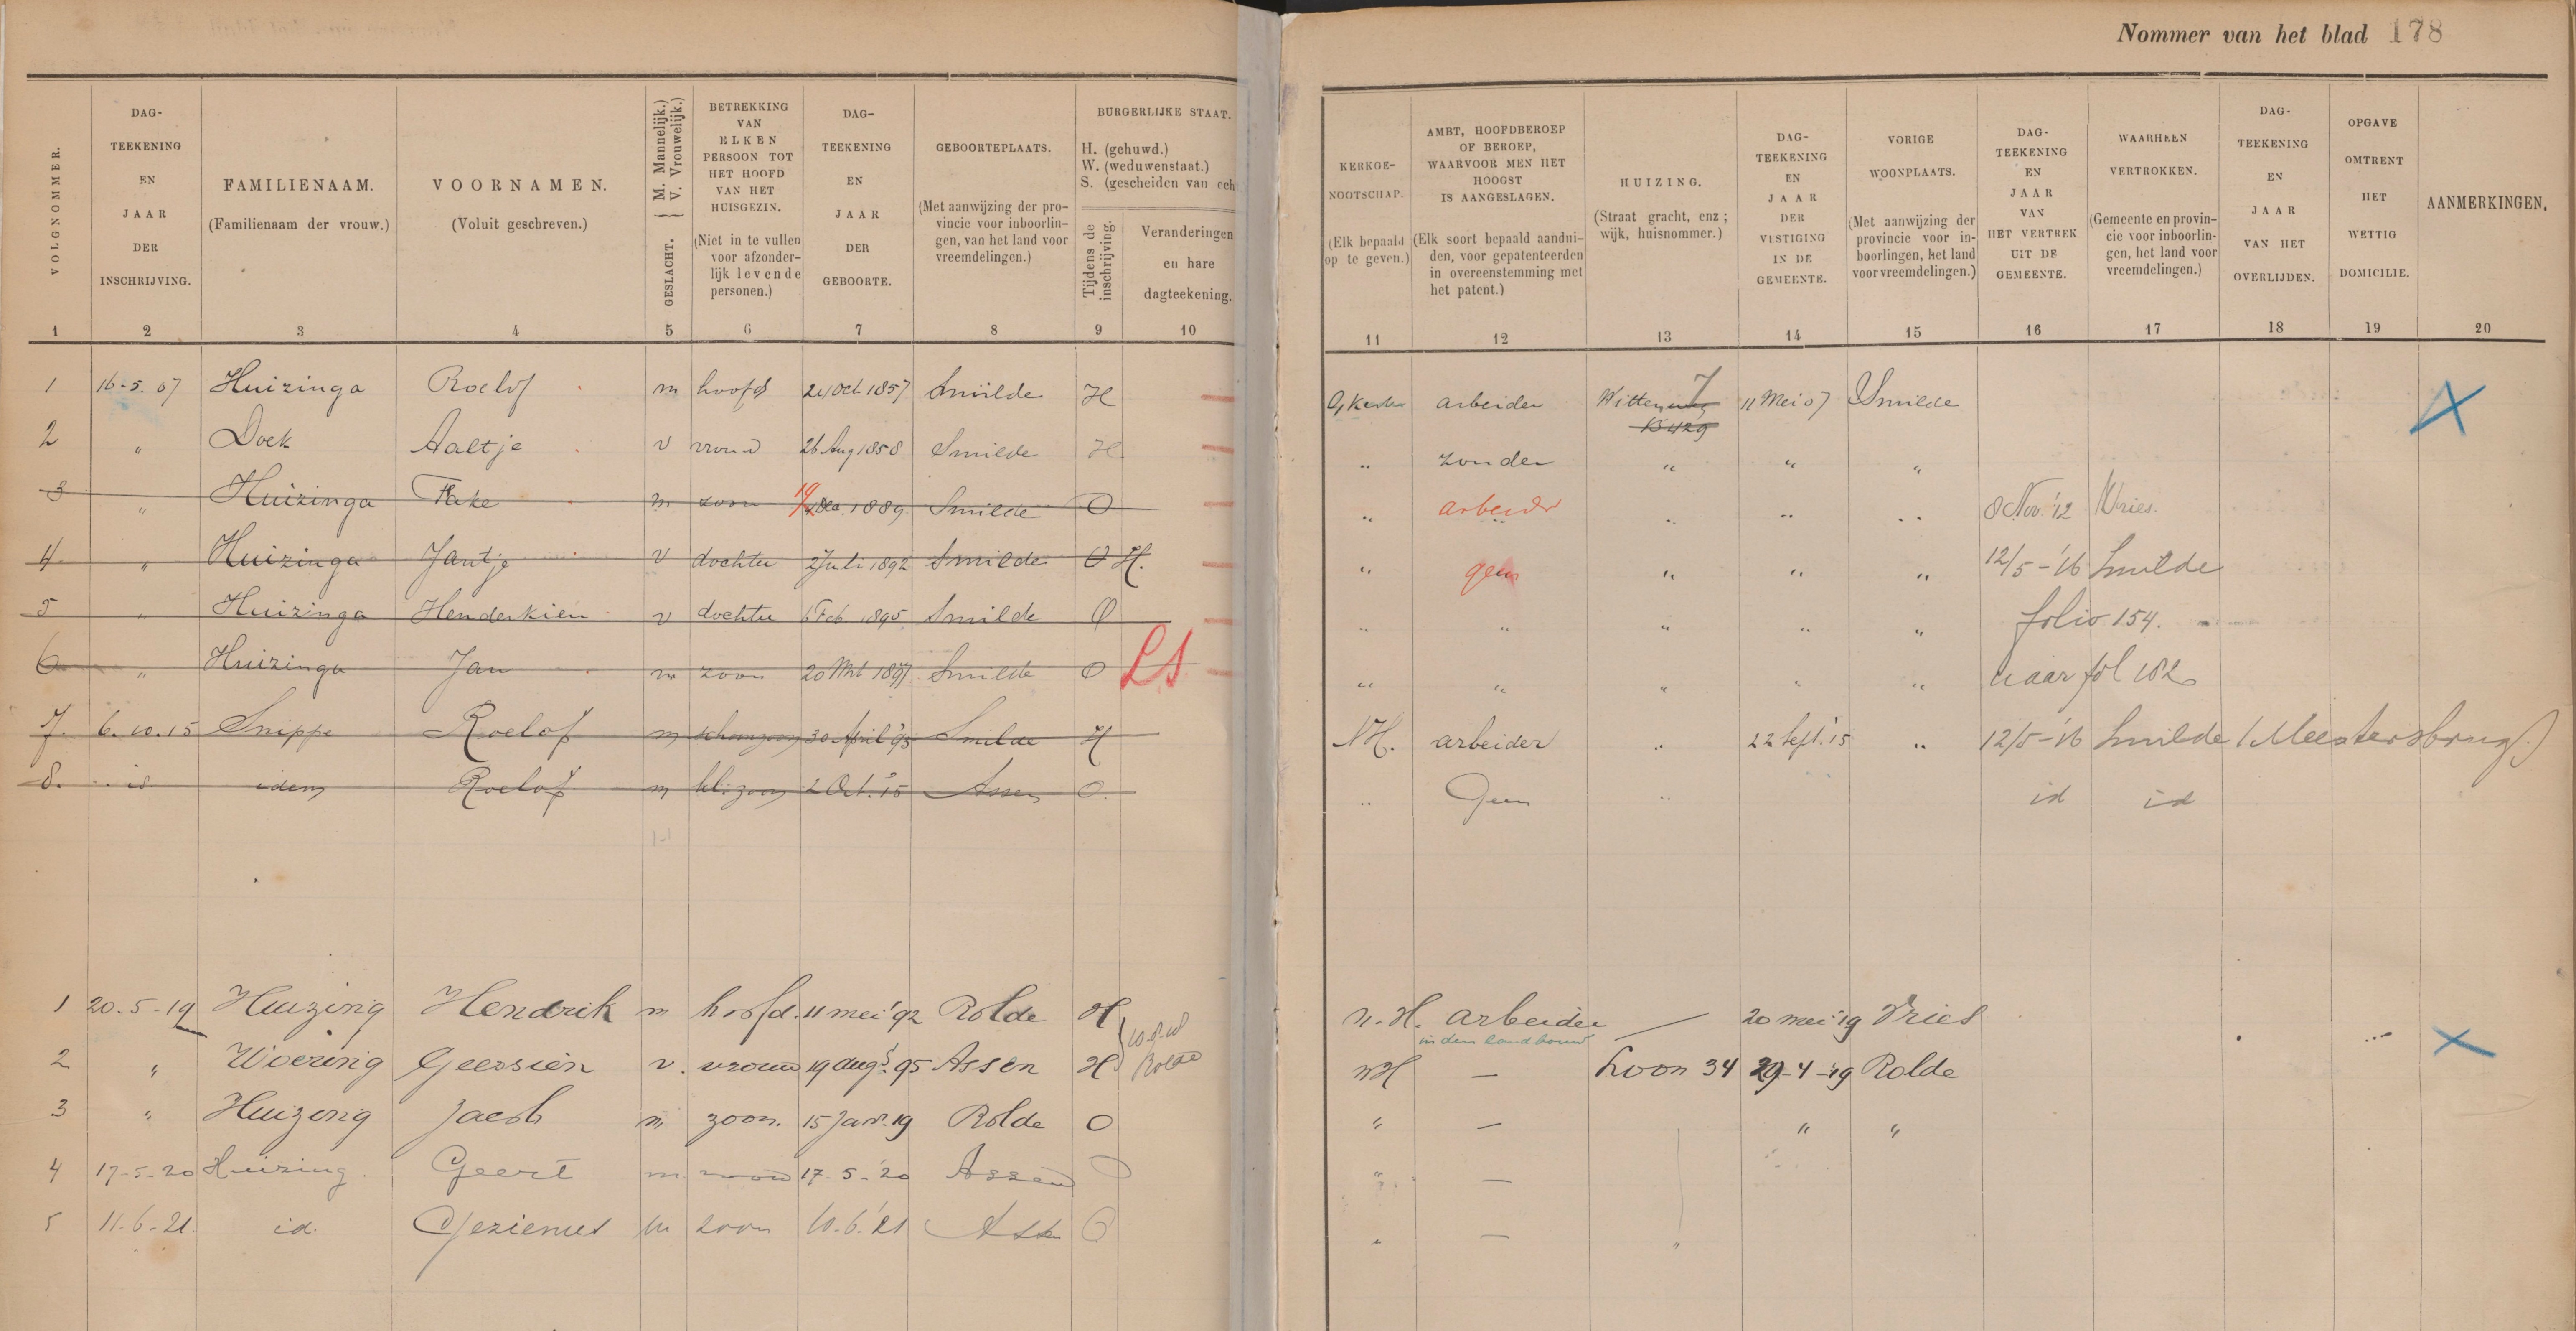 Nommer van het blad 178
VOLGNOMMER.
DAG-
TEEKENING
EN
JAAR
DER
INSCHRIJVING.
FAMILIENAAM.
(Familienaam der vrouw.)
VOORNAMEN.
(Voluit geschreven.)
GESLACHT. { M. Mannelijk.) V. Vrouwelijk.)
BETREKKING
VAN
ELKEN
PERSOON TOT
HET HOOFD
VAN HET
HUISGEZIN.
(Niet in te vullen
voor afzonder-
lijk levende
personen.)
DAG-
TEEKENING
EN
JAAR
DER
GEBOORTE.
GEBOORTEPLAATS.
(Met aanwijzing der pro-
vincie voor inboorlin-
gen, van het land voor
vreemdelingen.)
BURGERLIJKE STAAT.
H. (gehuwd.)
W. (weduwenstaat.)
S. (gescheiden van ech
Tijdens de
inschrijving.
Veranderingen
en hare
dagteekening.
KERKGE-
NOOTSCHAP.
(Elk bepaald
op te geven.)
AMBT, HOOFDBEROEP
OF BEROEP,
WAARVOOR MEN HET
HOOGST
IS AANGESLAGEN.
(Elk soort bepaald aandui-
den, voor gepatenteerden
in overeenstemming met
het patent.)
HUIZING.
(Straat gracht, enz;
wijk, huisnommer.)
DAG-
TEEKENING
EN
JAAR
DER
VESTIGING
IN DE
GEMEENTE.
VORIGE
WOONPLAATS.
(Met aanwijzing der
provincie voor in-
boorlingen, het land
voor vreemdelingen.)
DAG-
TEEKENING
EN
JAAR
VAN
HET VERTREK
UIT DE
GEMEENTE.
WAARHEEN
VERTROKKEN.
(Gemeente en provin-
cie voor inboorlin-
gen, het land voor
vreemdelingen.)
DAG-
TEEKENING
EN
JAAR
VAN HET
OVERLIJDEN.
OPGAVE
OMTRENT
HET
WETTIG
DOMICILIE.
AANMERKINGEN.
1 2 3 4 5 6 7 8 9 10 11 12 13 14 15 16 17 18 19 20
1 16-5.07 Huizinga Roelof m hoofd 24 Oct 1857 Smilde H arbeider 7 11 Mei 07 Smilde
B 429
2 " Doek Aaltje v vrouw 26 Aug 1858 Smilde H " zonder " " "
3 " Huizinga m zoon 19 Dec. 1889 Smilde O " arbeider " " " 8 Nov. '12 Vries.
4 " Huizinga Jantje v dochter 2 Juli 1892 Smilde O H. " geen " " " 12/5-'16 Smilde
5 " Huizinga Henderkien v dochter 6 Feb 1895 Smilde O " " " " " folio 154.
6 " Huizinga Jan m zoon 20 Mrt 1897 Smilde O LS " " " " " naar fol 182
7. 6.10.15 Snippe Roelof m schoonzoon 30 April '95 Smilde H NH. arbeider " 22 Sept. '15 " 12/5-'16 Smilde (Meestersbrug.)
8. id idem Roelof m kl. zoon 2 Oct. '15 Assen O. " Geen " id id
1 20-5-19 Huizing Hendrik m hoofd. 11 mei '92 Rolde H n.H. arbeider — 20 mei '19 Vries
in den landbouw
2 " Woering Geessien v. vrouw 19 Augs. 95 Assen H Rolde NH — Loon 34 29-4-'19 Rolde
3 " Huizing Jacob m zoon. 15 Jan. 19 Rolde O " — " "
4 17-5-20 Huizing. Geert m zoon 17-5-'20 Assen O " —
5 11-6-21. id. Gezienus m zoon 10.6.'21 Ass O " — "